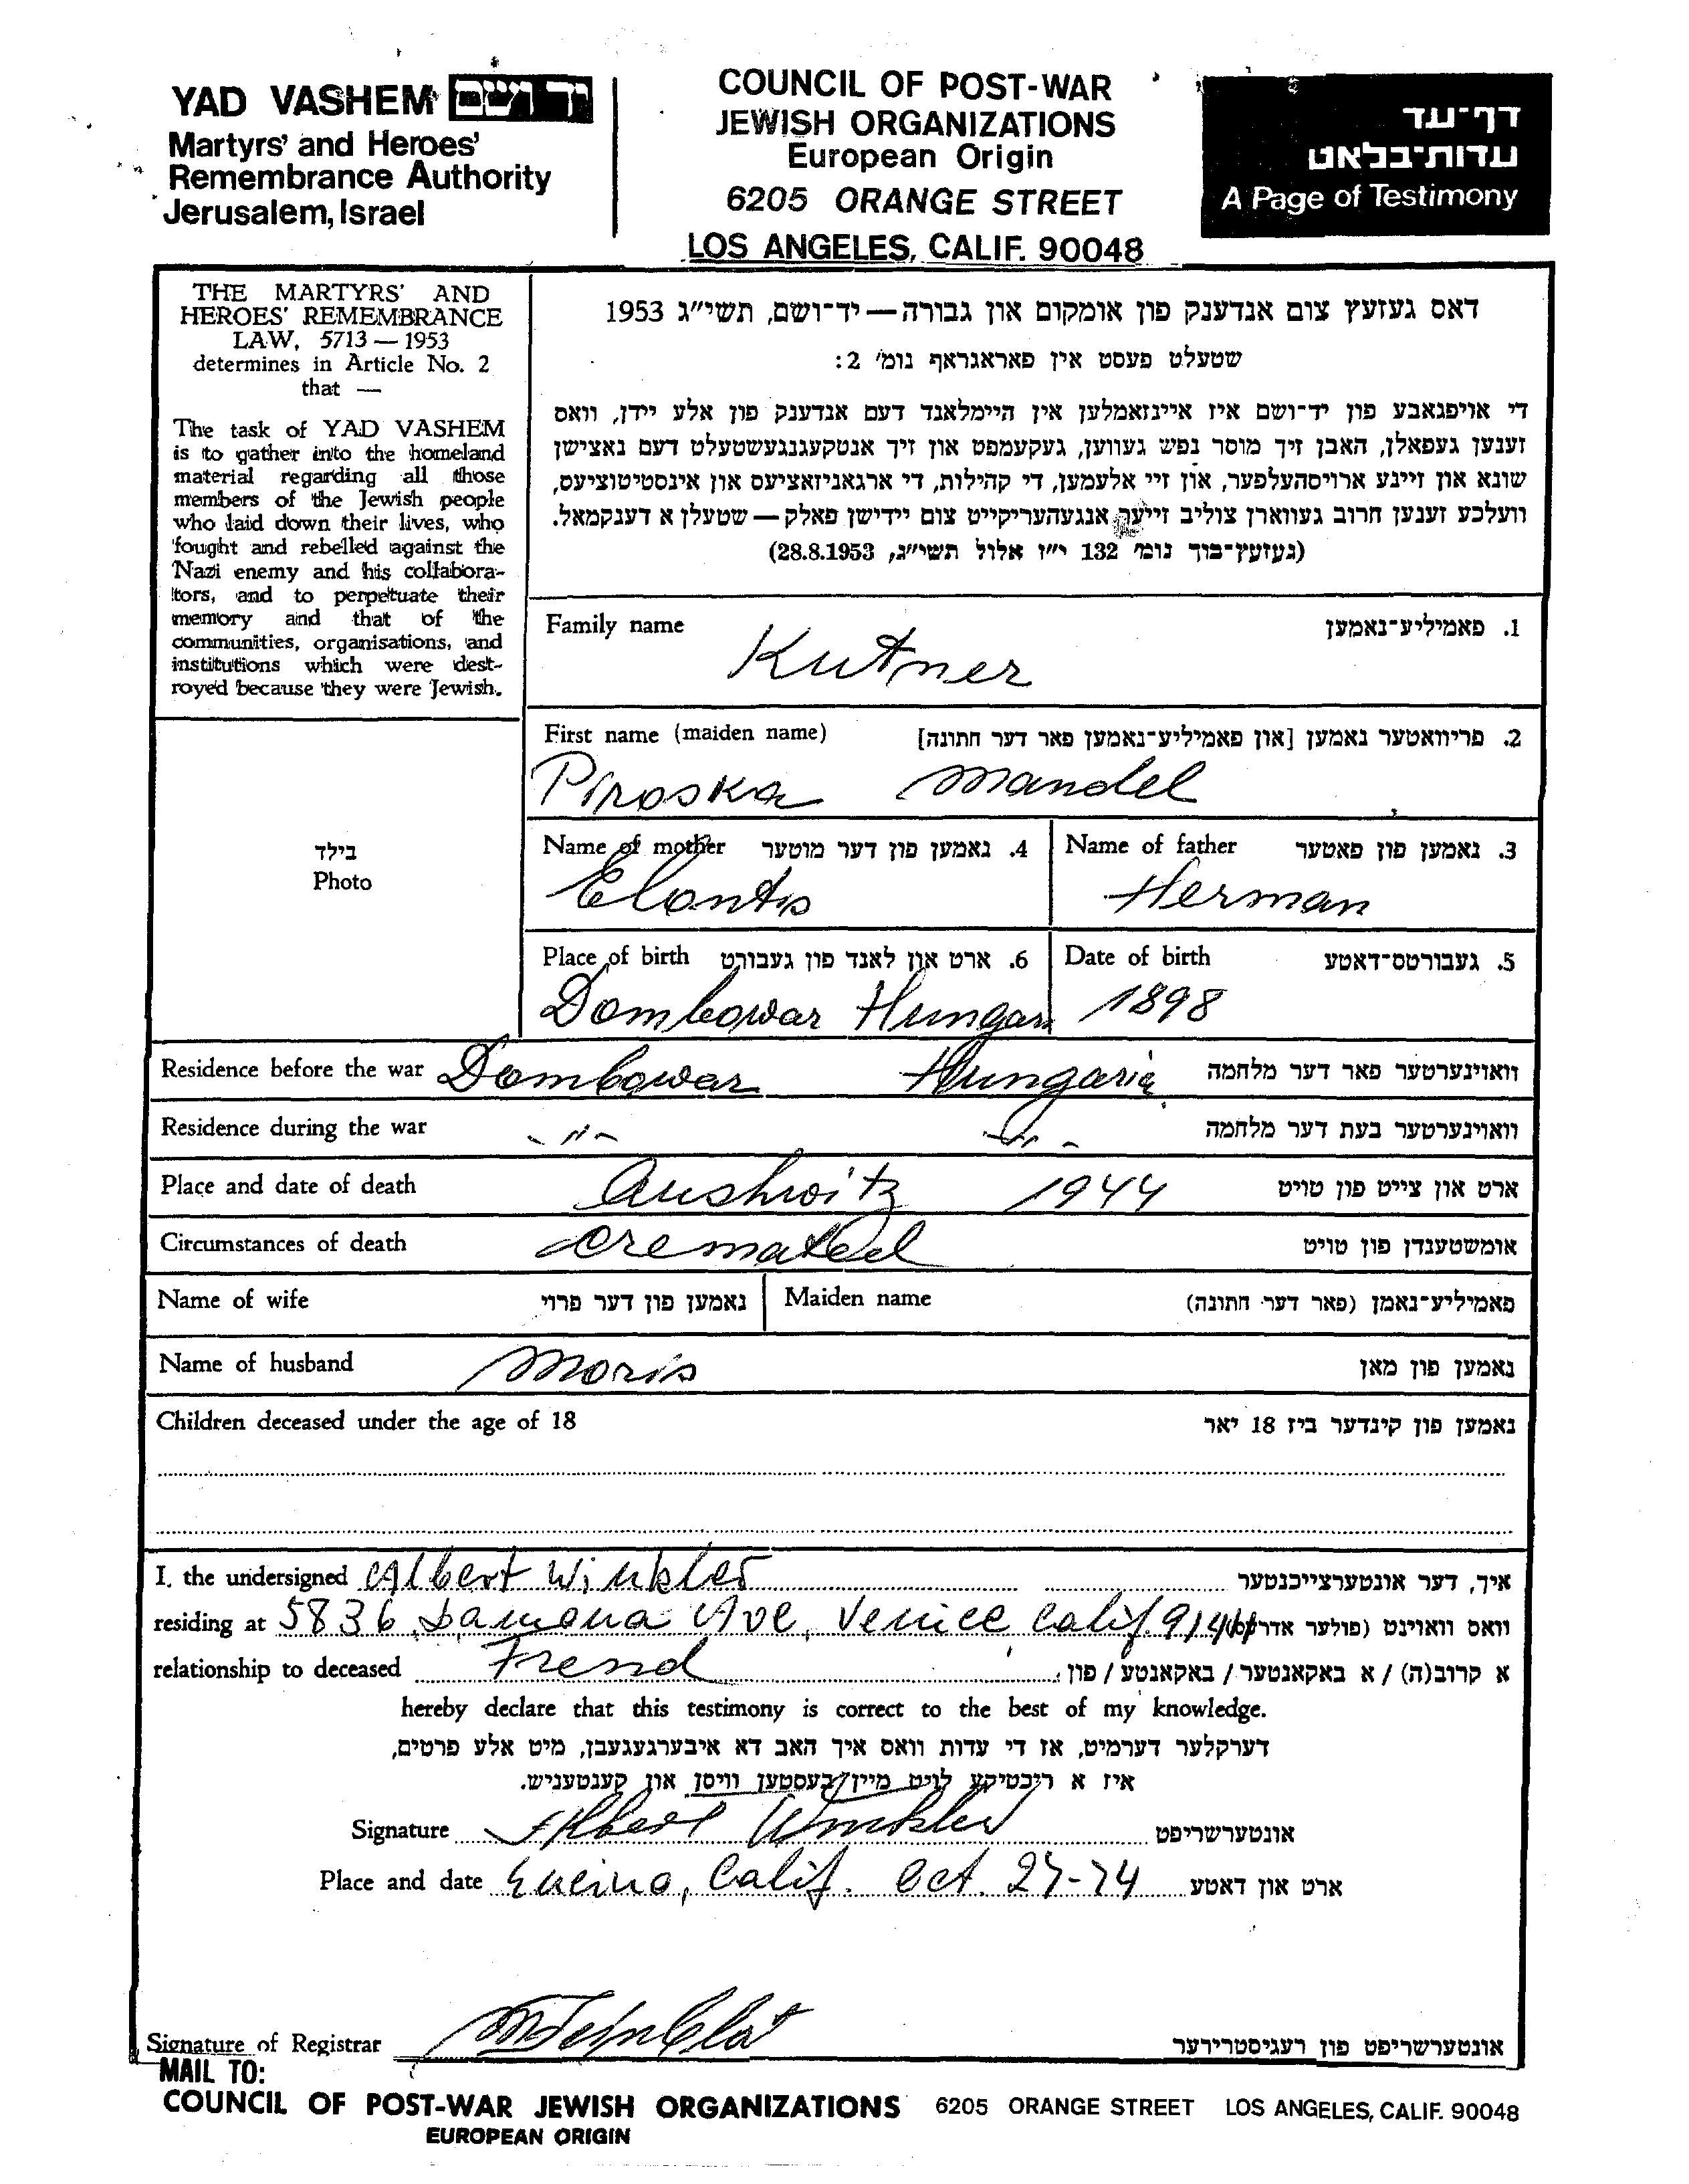 YAD VASHEM יד ושם
Martyrs' and Heroes'
Remembrance Authority
Jerusalem, Israel
COUNCIL OF POST-WAR
JEWISH ORGANIZATIONS
European Origin
6205 ORANGE STREET
LOS ANGELES, CALIF. 90048
דף־עד
עדות־בלאט
A Page of Testimony
THE MARTYRS' AND
HEROES' REMEMBRANCE
LAW, 5713 — 1953
determines in Article No. 2
that —
The task of YAD VASHEM
is to gather into the homeland
material regarding all those
members of the Jewish people
who laid down their lives, who
fought and rebelled against the
Nazi enemy and his collabora-
tors, and to perpetuate their
memory and that of the
communities, organisations, and
institutions which were dest-
royed because they were Jewish.
דאס געזעץ צום אנדענק פון אומקום און גבורה — יד־ושם, תשי״ג 1953
שטעלט פעסט אין פאראגראף נומ׳ 2:
די אויפגאבע פון יד־ושם איז איינזאמלען אין היימלאנד דעם אנדענק פון אלע יידן, וואס
זענען געפאלן, האבן זיך מוסר נפש געווען, געקעמפט און זיך אנטקעגנגעשטעלט דעם נאצישן
שונא און זיינע ארויסהעלפער, און זיי אלעמען, די קהילות, די ארגאניזאציעס און אינסטיטוציעס,
וועלכע זענען חרוב געווארן צוליב זייער אנגעהעריקייט צום יידישן פאלק — שטעלן א דענקמאל.
(געזעץ־בוך נומ׳ 132 י״ז אלול תשי״ג, 28.8.1953)
Family name 1. פאמיליע־נאמען
Kutner
First name (maiden name) 2. פריוואטער נאמען [און פאמיליע־נאמען פאר דער חתונה]
Piroska Mandel
בילד
Photo
Name of mother 4. נאמען פון דער מוטער Name of father 3. נאמען פון פאטער
Herman
Place of birth 6. ארט און לאנד פון געבורט Date of birth 5. געבורטס־דאטע
Dombowar Hungari 1898
Residence before the war Dombowar Hungaria וואוינערטער פאר דער מלחמה
Residence during the war -"- -"- וואוינערטער בעת דער מלחמה
Place and date of death Aushwitz 1944 ארט און צייט פון טויט
Circumstances of death cremated אומשטענדן פון טויט
Name of wife נאמען פון דער פרוי Maiden name פאמיליע־נאמן (פאר דער חתונה)
Name of husband Moris נאמען פון מאן
Children deceased under the age of 18 נאמען פון קינדער ביז 18 יאר
I, the undersigned Albert Winkler איך, דער אונטערצייכנטער
residing at 5836 Ave, Venice Calif. וואס וואוינט (פולער אדרעס)
relationship to deceased Frend א קרוב(ה) / א באקאנטער / באקאנטע / פון:
hereby declare that this testimony is correct to the best of my knowledge.
דערקלער דערמיט, אז די עדות וואס איך האב דא איבערגעגעבן, מיט אלע פרטים,
איז א ריכטיקע לויט מיין בעסטען וויסן און קענטעניש.
Signature Albert Winkler אונטערשריפט
Place and date Encino, Calif. Oct. 27-74 ארט און דאטע
Signature of Registrar אונטערשריפט פון רעגיסטרירער
MAIL TO:
COUNCIL OF POST-WAR JEWISH ORGANIZATIONS 6205 ORANGE STREET LOS ANGELES, CALIF. 90048
EUROPEAN ORIGIN